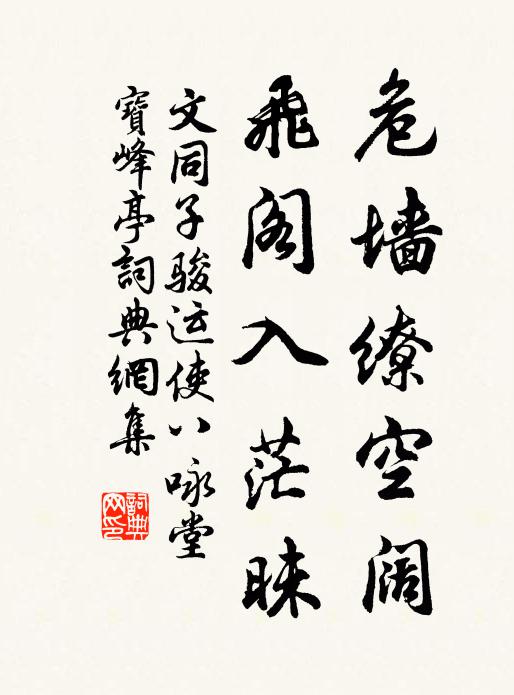 危墙缭空阔
飛阁入茫昧
文同子骏运使八咏堂
寳峰亭詞典網集
詞典网印